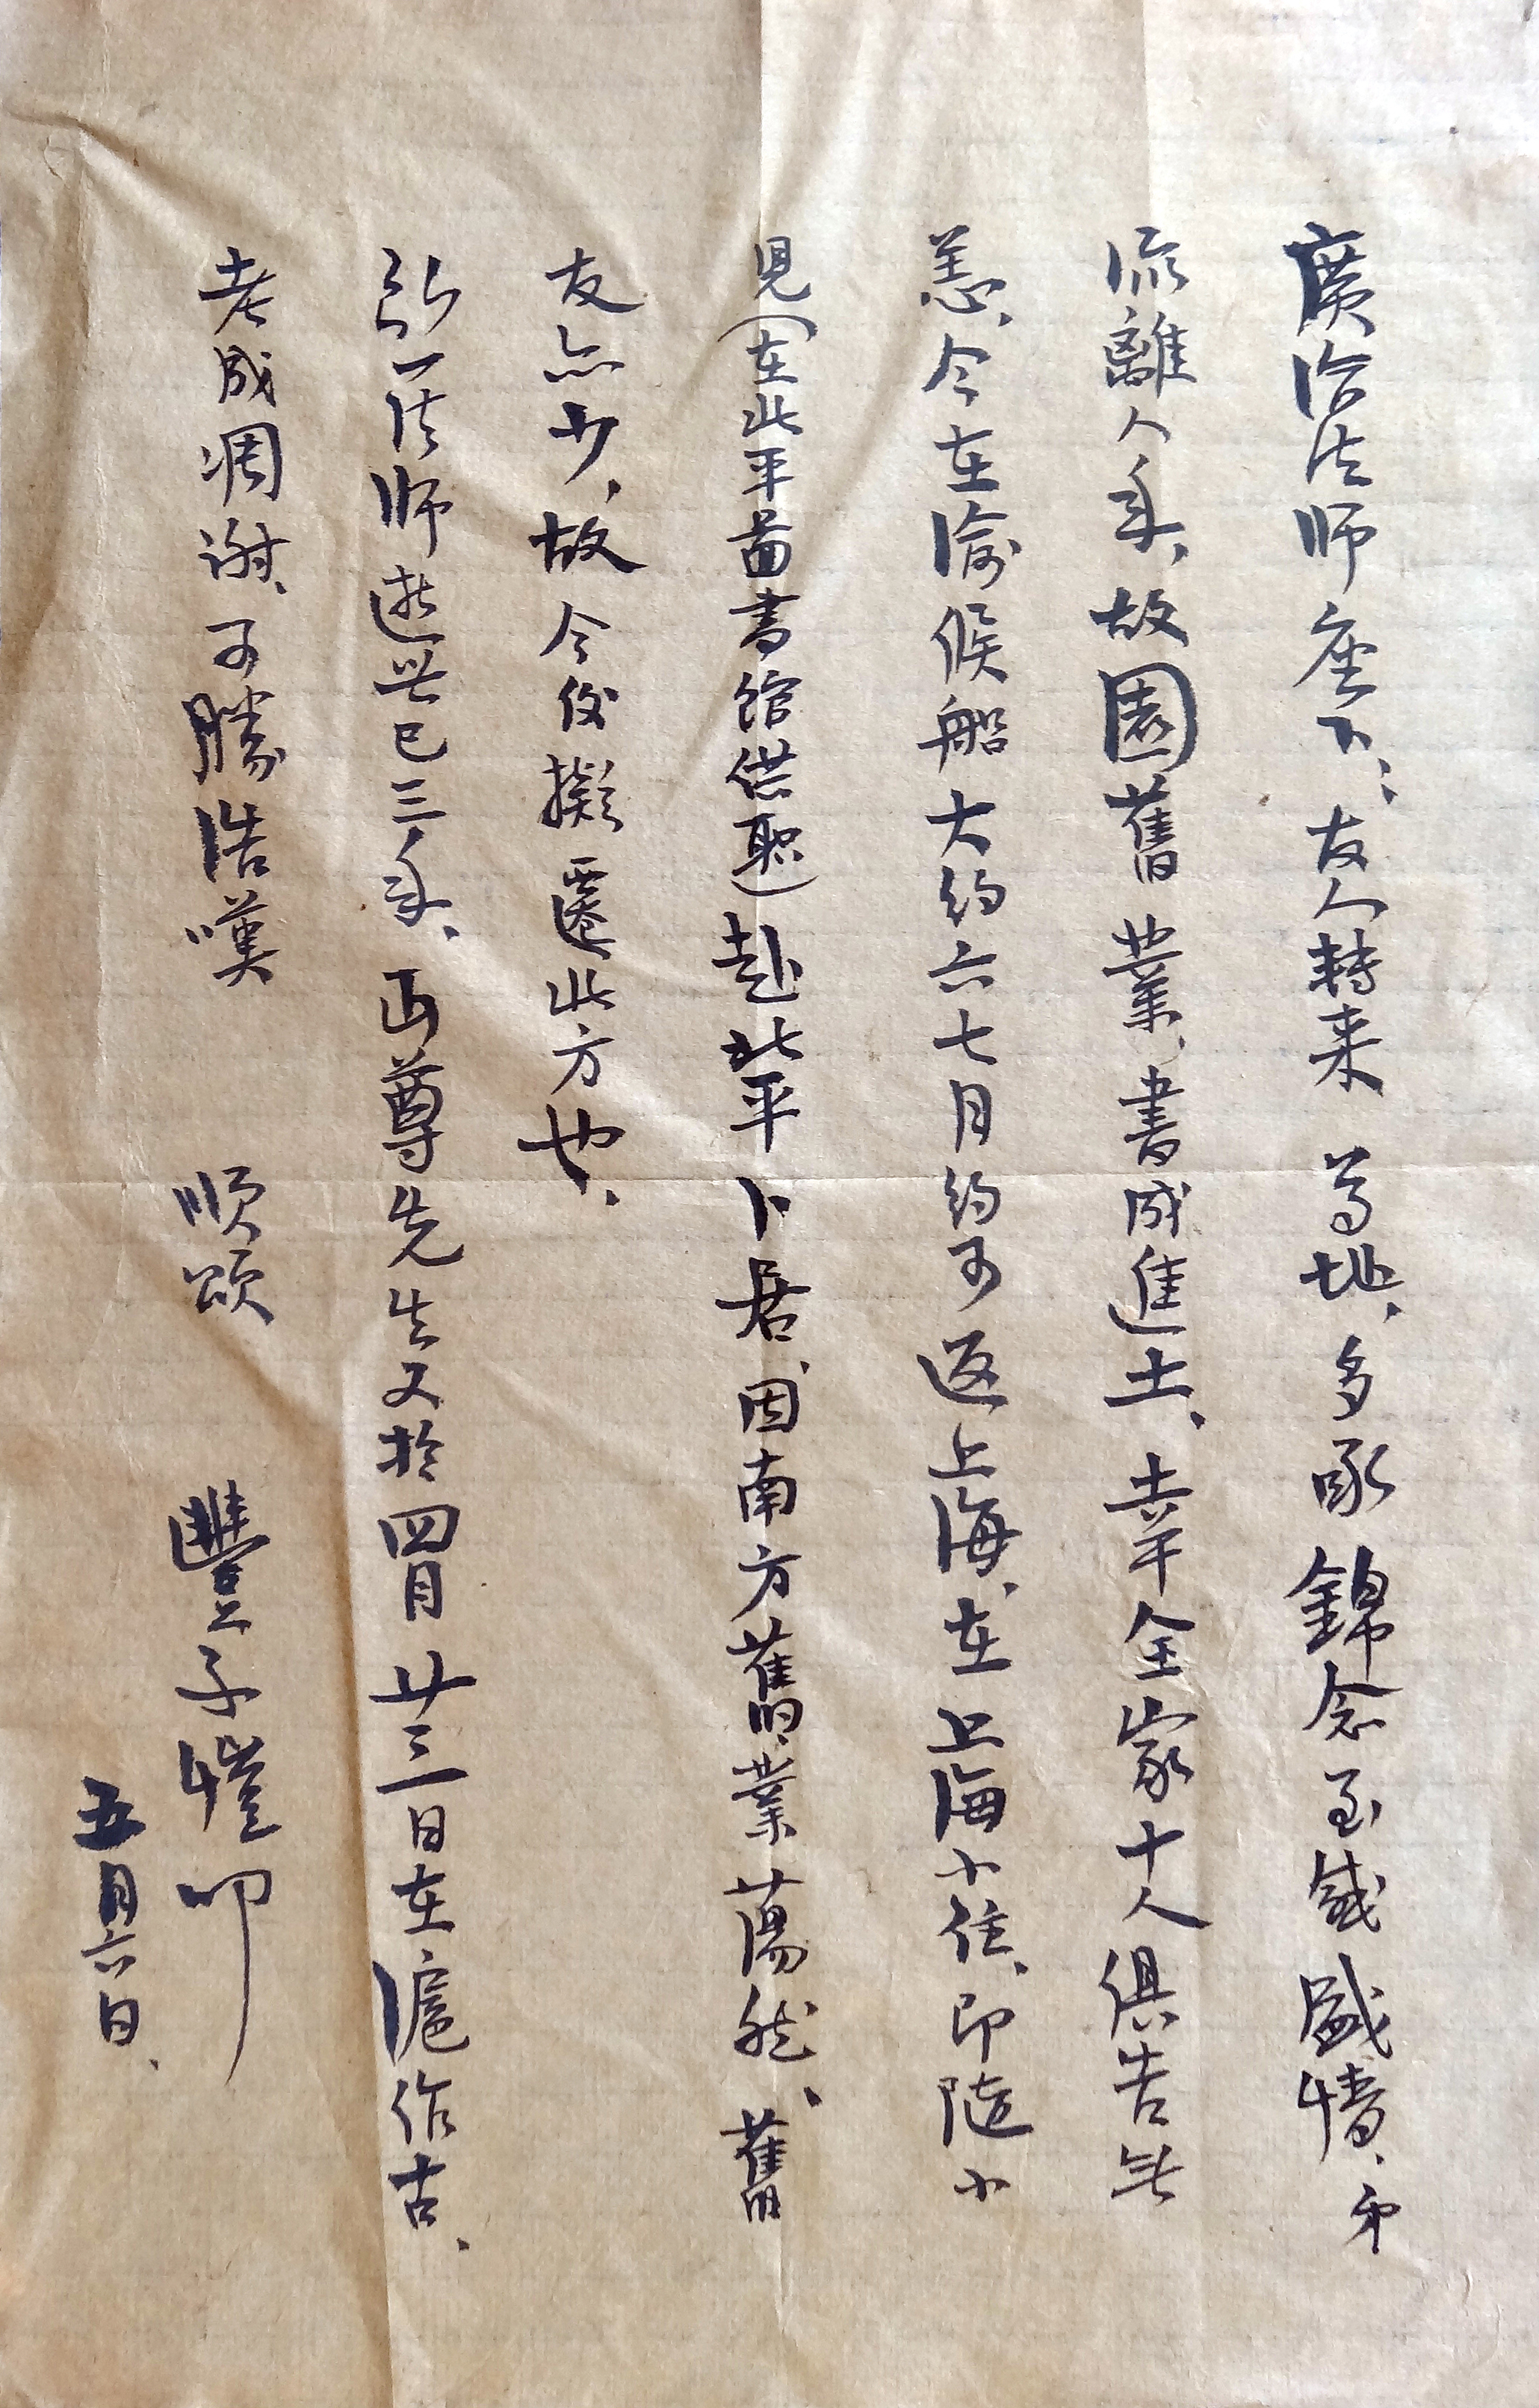 廣洽法師座下：友人轉来 尊址、多承錦念至感盛情、弟
流離八年、故園舊業、書成進土、幸全家十人俱告無
恙、今在渝候船大約六七月約可返上海、在上海小住、即隨小
兒（在北平图書館供职）赴北平卜居、因南方舊業蕩然、舊
友亦少、故今後擬遷北方也、
弘一法師逝世已三年、丏尊先生又於四月廿三日在滬作古、
老成凋謝、可勝浩嘆 順頌 豐子愷叩
五月六日、